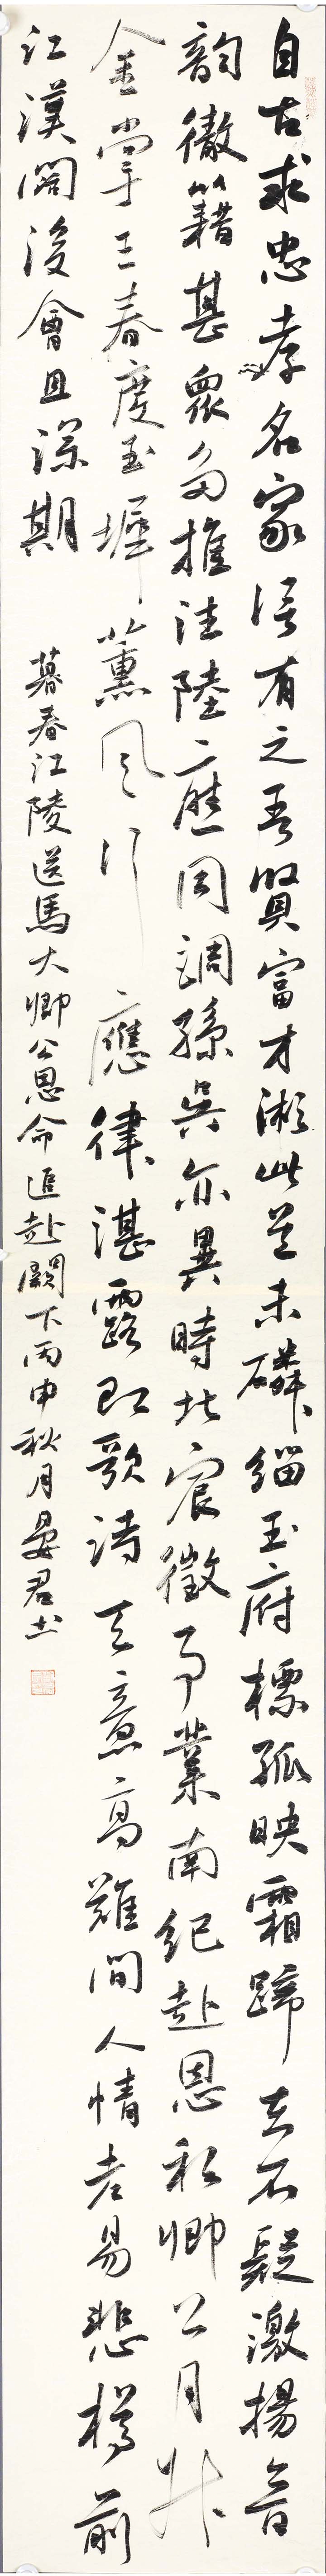 自古求忠孝名家信有之吾賢富才術此道未磷緇玉府標孤映霜蹄去不疑激揚音
韻徹籍甚眾多推潘陸應同調孫吳亦異時北宸徵事業南紀赴恩私卿公月升
金掌王春度玉墀薰風行應律湛露即歌詩天意高難問人情老易悲樽前
江漢闊後會且深期
暮春江陵送馬大卿公恩命追赴闕下丙申秋月晏君書